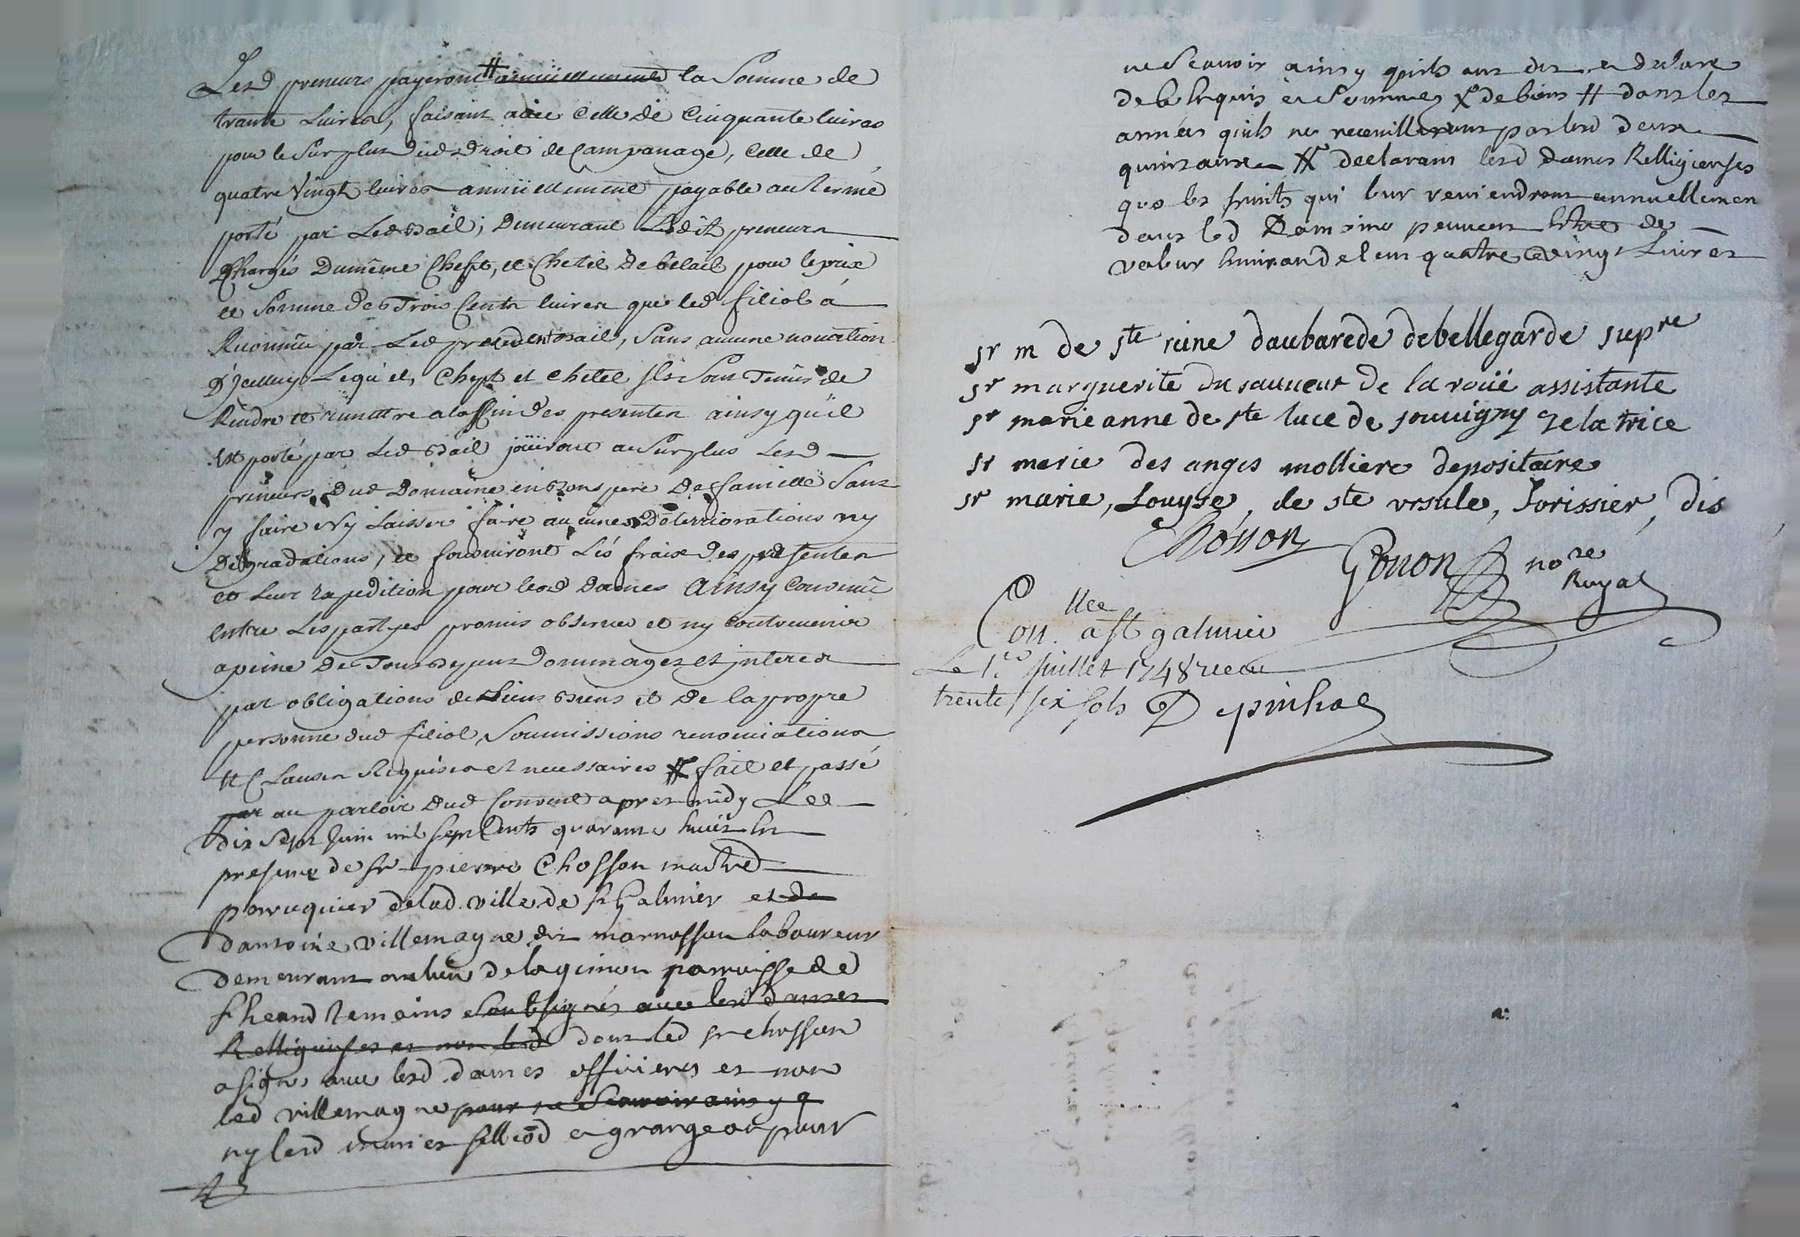 Lesd preneurs payeront # annüellement la Somme de
trante Livres, faisant avec Celle de Cinquante livres
pour le Surplus dud droit de Campanage, Celle de
quatre Vingt livres annüellement payable au terme
porté par Led bail; Demeurant Lesdit preneurs
Chargés Dumême Chept, et Chetel De betail pour le prix
et Somme de Trois Cents livres que led filiol a
Reconnu par Led precedent bail, Sans aucune novation
D'Jcelluy Lequel, Chept et Chetel Jls Sont Tenus de
Rendre et remettre a la ffin des presentes ainsy qu'il
Est porté par Led bail joüiront au Surplus Lesd
preneurs Dud Domaine en bons pere De famille Sans
y faire Ny Laisser faire aucunes Deteriorations ny
Degradations, et fourniront Les fraix des presentes
et Leur Expedition pour lesd Dames Ainsy Convenu
entre Les partyes promis observer et ny Contrevenir
a peine De Tous Depens Dommages et jnterets
par obligations de biens et De la propre
personne dud filiol, Soumissions renonciations
# Clauses Requises et necessaires # fait et passé
par au parloir Dud Convent apres midy Le
dix Sept Juin mil Sept Cents quarante huit En
presence de Sr pierre Chosson maitre
perruquier delad. ville de St Galmier et de
d'antoine villemagne dit marnosson laboureur
demeurant au lieu de la gimon parroisse de
St heand temoins soubsignés avec lesd dames
Religieuses et non lesd dont led Sr chosson
a signé avec lesd dames officieres et non
led villemagne pour ne Scavoir ainsy q
ny lesd meunier filliod et grangeon pour
ne Scavoir ainsy quils ont dit et declaré
de ce Enquis et Sommés X de biens # dans les
années quils ne recevilleront par lesd deux
quinzaine # declarant lesd dames Relligieuses
que les fruits qui leur reviendront annuellement
dans led Domaine peuvent Estre de
valeur Environ de lem quatre vingt Livres
sr m de ste reine daubarede debellegarde supre
sr marguerite du sauueur de la roüe assistante
sr marie anne de ste luce de souuigny zelatrice
sr marie des anges molliere depositaire
sr marie, Louyse, de ste vrsule, forissier, dis
Chosson
Gonon nore
Royal
Con.llee a St galmier
Le 1er Juillet 1748 receu
trente six sols Depinhac